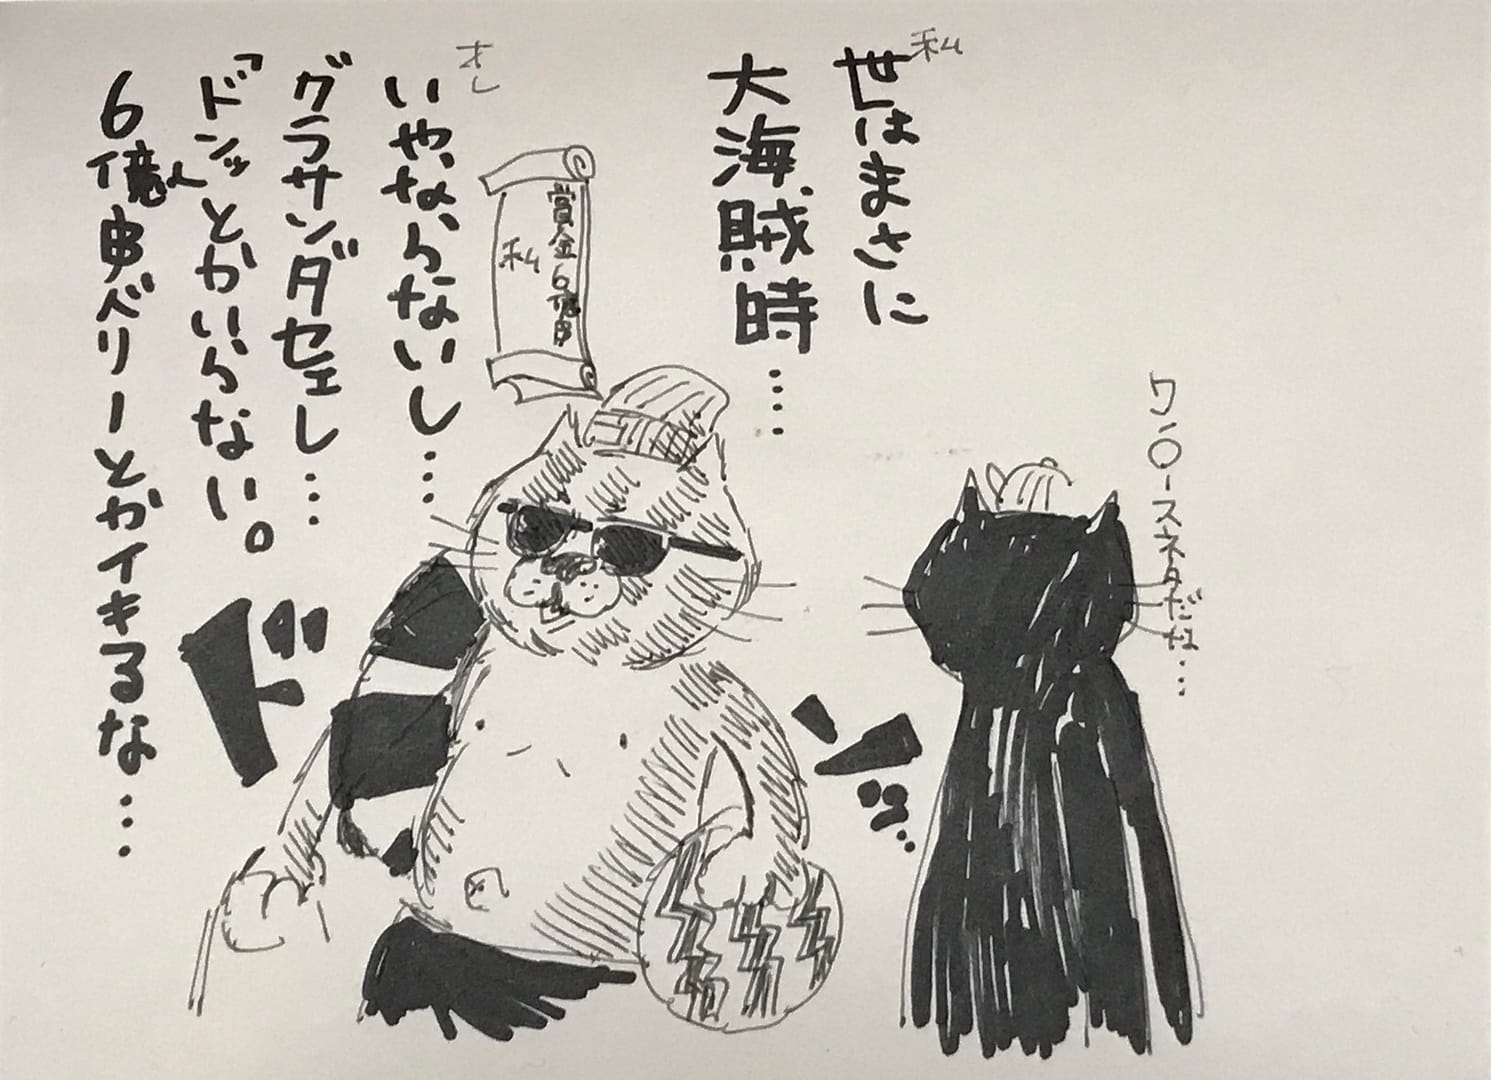 私
世はまさに
大海賊時……
オレ
いや、ならないし…
グラサンダセェし…
「ドンッ」とかいらない。
6億串ベリーとかイキるな…
賞金6億串
私
ワ〇ースネタだな…
ドンッ…